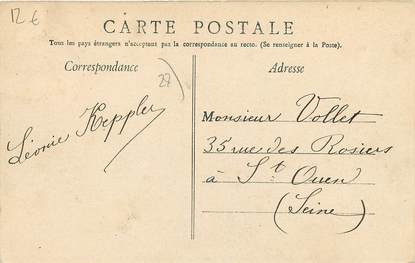 12 €
CARTE POSTALE
Tous les pays étrangers n'acceptent pas la correspondance au recto. (Se renseigner à la Poste).
Correspondance
Adresse
22
Léonie Keppler
Monsieur Vollet
35 rue des Rosiers
à St Ouen
(Seine)